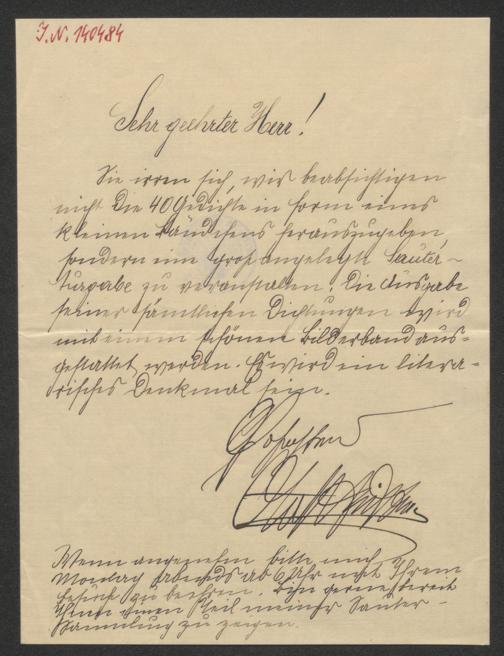 J.N. 140484
Sehr geehrter Herr!
Sie irren sich, wir beabsichtigen
nicht die 40 Gedichte in Form eines
kleinen Bändchens herauszugeben
sondern eine groß angelegte Sauter-
ausgabe zu veranstalten. Die Ausgabe
seiner sämtlichen Dichtungen wird
mit einem schönen Bilderband aus-
gestattet werden. Es wird ein litera-
risches Denkmal sein.
Wenn angenehm bitte mich
Montag Abends ab 6 Uhr mit Ihrem
Besuch zu beehren. Bin gerne bereit
Ihnen einen Theil meiner Sauter-
Sammlung zu zeigen.